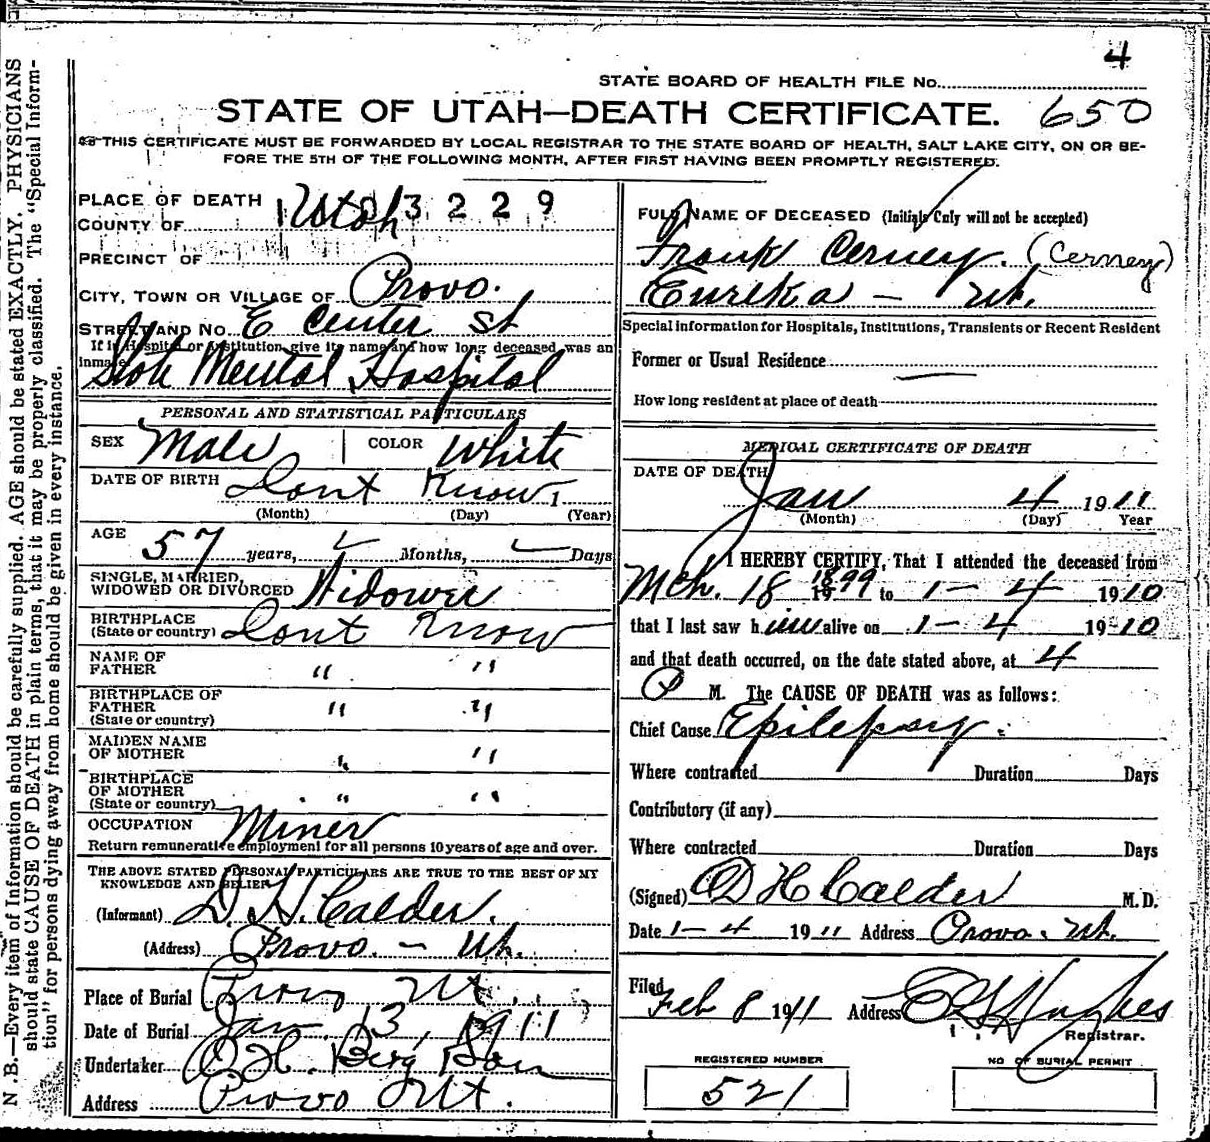 4
STATE BOARD OF HEALTH FILE No.
STATE OF UTAH—DEATH CERTIFICATE. 650
THIS CERTIFICATE MUST BE FORWARDED BY LOCAL REGISTRAR TO THE STATE BOARD OF HEALTH, SALT LAKE CITY, ON OR BE-
FORE THE 5TH OF THE FOLLOWING MONTH, AFTER FIRST HAVING BEEN PROMPTLY REGISTERED.
N.B.—Every item of Information should be carefully supplied. AGE should be stated EXACTLY. PHYSICIANS
should state CAUSE OF DEATH in plain terms, that it may be properly classified. The "Special Inform-
tion" for persons dying away from home should be given in every instance.
PLACE OF DEATH 3 2 2 9
COUNTY OF Utah
PRECINCT OF
CITY, TOWN OR VILLAGE OF Provo.
STREET AND No. E Center St
If in Hospital or Institution give its name and how long deceased was an
inmate State Mental Hospital
PERSONAL AND STATISTICAL PARTICULARS
SEX Male COLOR White
DATE OF BIRTH Dont Know 1
(Month) (Day) (Year)
AGE 57 years, Months, Days
SINGLE, MARRIED,
WIDOWED OR DIVORCED Widower
BIRTHPLACE
(State or country) Dont Know
NAME OF
FATHER " "
BIRTHPLACE OF
FATHER " "
(State or country)
MAIDEN NAME
OF MOTHER " "
BIRTHPLACE
OF MOTHER " "
(State or country)
OCCUPATION Miner
Return remunerative employment for all persons 10 years of age and over.
THE ABOVE STATED PERSONAL PARTICULARS ARE TRUE TO THE BEST OF MY
KNOWLEDGE AND BELIEF
(Informant) D. H. Calder.
(Address) Provo. — Ut.
Place of Burial Provo Ut.
Date of Burial Jan 13, 1911
Undertaker O. H. Berg & Son
Address Provo Ut.
FULL NAME OF DECEASED (Initials Only will not be accepted)
Frank Cerney. (Cerney)
Eureka — Ut.
Special information for Hospitals, Institutions, Transients or Recent Resident
Former or Usual Residence
How long resident at place of death
MEDICAL CERTIFICATE OF DEATH
DATE OF DEATH
Jan 4 1911
(Month) (Day) Year
I HEREBY CERTIFY, That I attended the deceased from
Mch. 18 1899 to 1-4 1910
that I last saw him alive on 1-4 1910
and that death occurred, on the date stated above, at 4
P M. The CAUSE OF DEATH was as follows:
Chief Cause Epilepsy.
Where contracted Duration Days
Contributory (if any)
Where contracted Duration Days
(Signed) D H Calder M.D.
Date 1-4 1911 Address Provo. Ut.
Filed
Feb 8 1911 Address Hughes
Registrar.
REGISTERED NUMBER NO OF BURIAL PERMIT
521